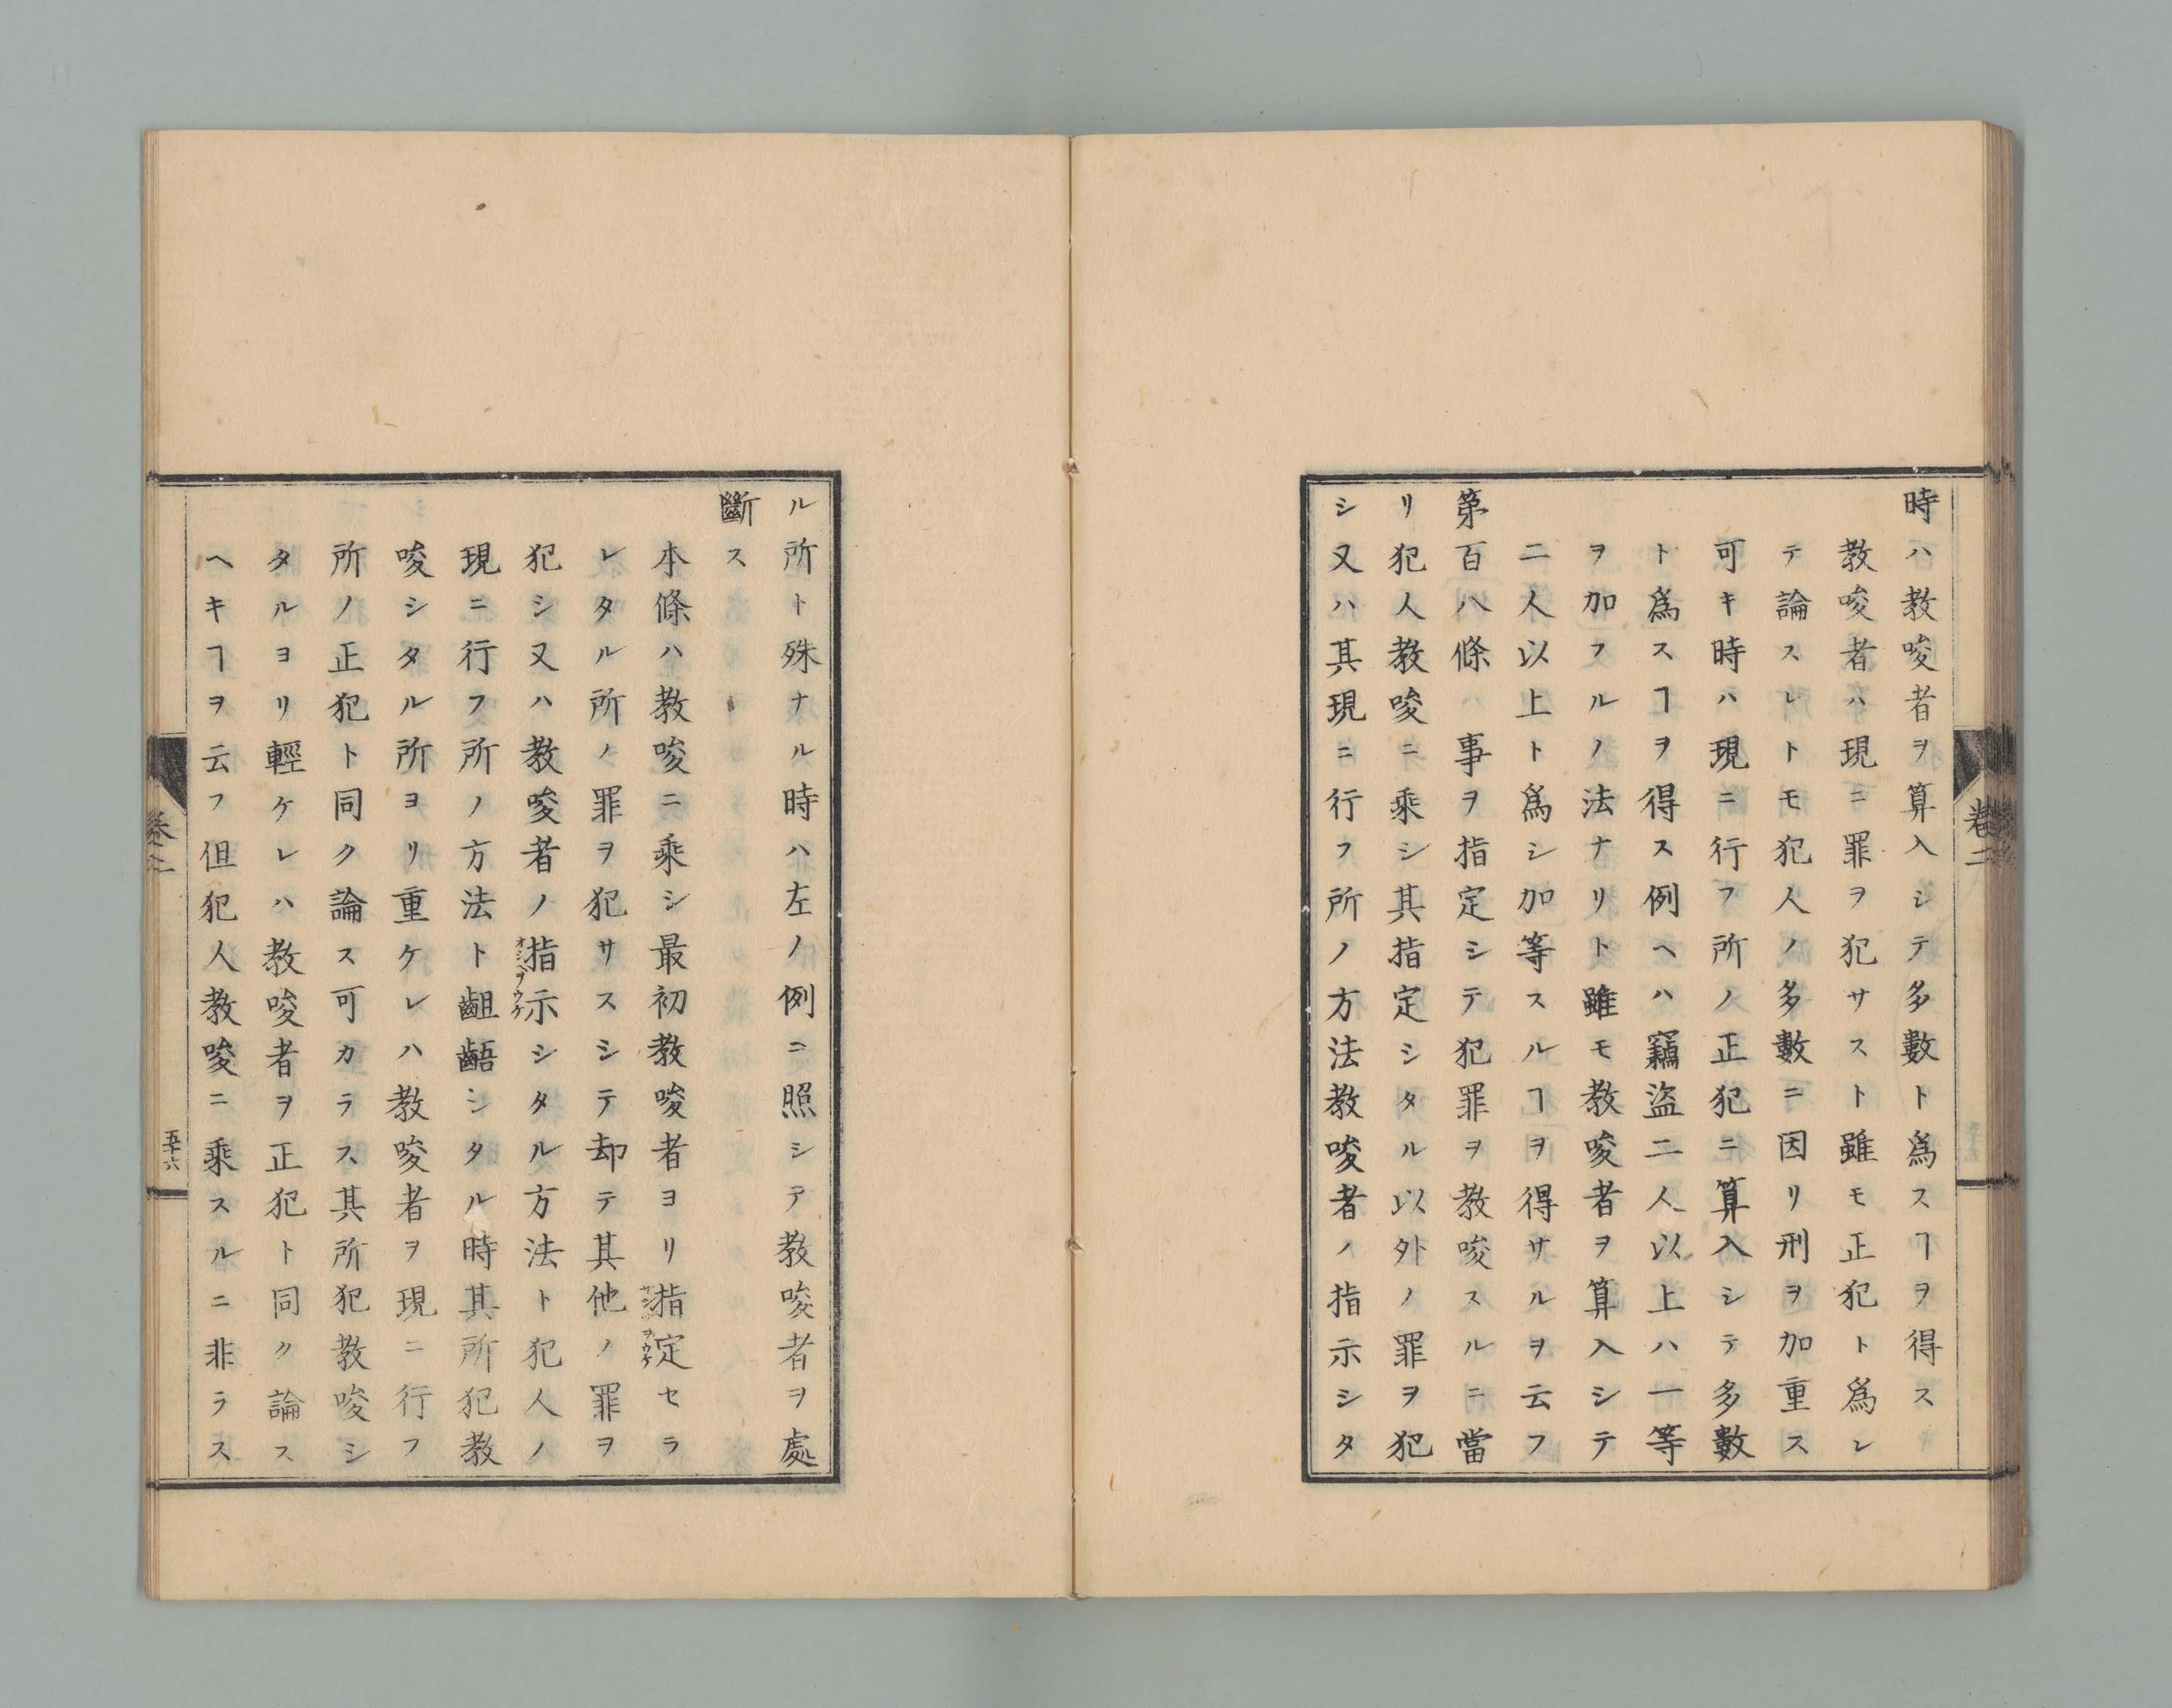 時ハ教唆者ヲ算入シテ多數ト爲スヿヲ得ス
教唆者ハ現ニ罪ヲ犯サスト雖モ正犯ト爲シ
テ論スレトモ犯人ノ多數ニ因リ刑ヲ加重ス
可キ時ハ現ニ行フ所ノ正犯ニ算入シテ多數
ト爲スヿヲ得ス例ヘハ竊盜二人以上ハ一等
ヲ加フルノ法ナリト雖モ教唆者ヲ算入シテ
二人以上ト爲シ加等スルヿヲ得サルヲ云フ
第百八條ハ事ヲ指定シテ犯罪ヲ教唆スルニ當
リ犯人教唆ニ乘シ其指定シタル以外ノ罪ヲ犯
シ又ハ其現ニ行フ所ノ方法教唆者ノ指示シタ
卷二
ル所ト殊ナル時ハ左ノ例ニ照シテ教唆者ヲ處
斷ス
本條ハ教唆ニ乘シ最初教唆者ヨリ指定セラ
レタル所ノ罪ヲ犯サスシテ却テ其他ノ罪ヲ
犯シ又ハ教唆者ノ指示シタル方法ト犯人ノ
現ニ行フ所ノ方法ト齟齬シタル時其所犯教
唆シタル所ヨリ重ケレハ教唆者ヲ現ニ行フ
所ノ正犯ト同ク論ス可カラス其所犯教唆シ
タルヨリ輕ケレハ教唆者ヲ正犯ト同ク論ス
ヘキヿヲ云フ但犯人教唆ニ乘スルニ非ラス
五十六